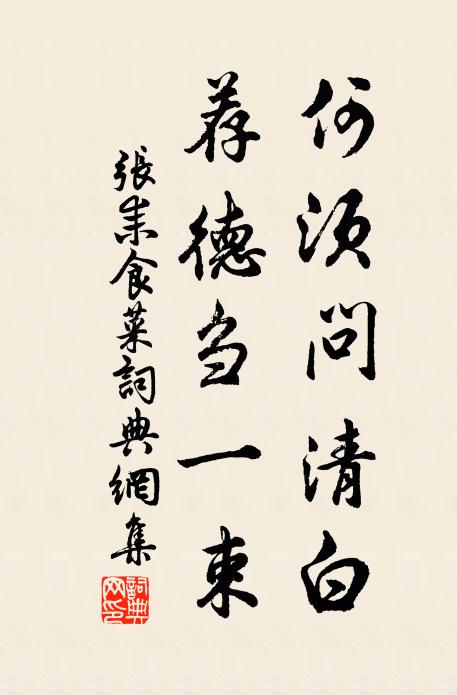 何须問清白
荐德刍一束
張耒食菜詞典網集
詞典
网印